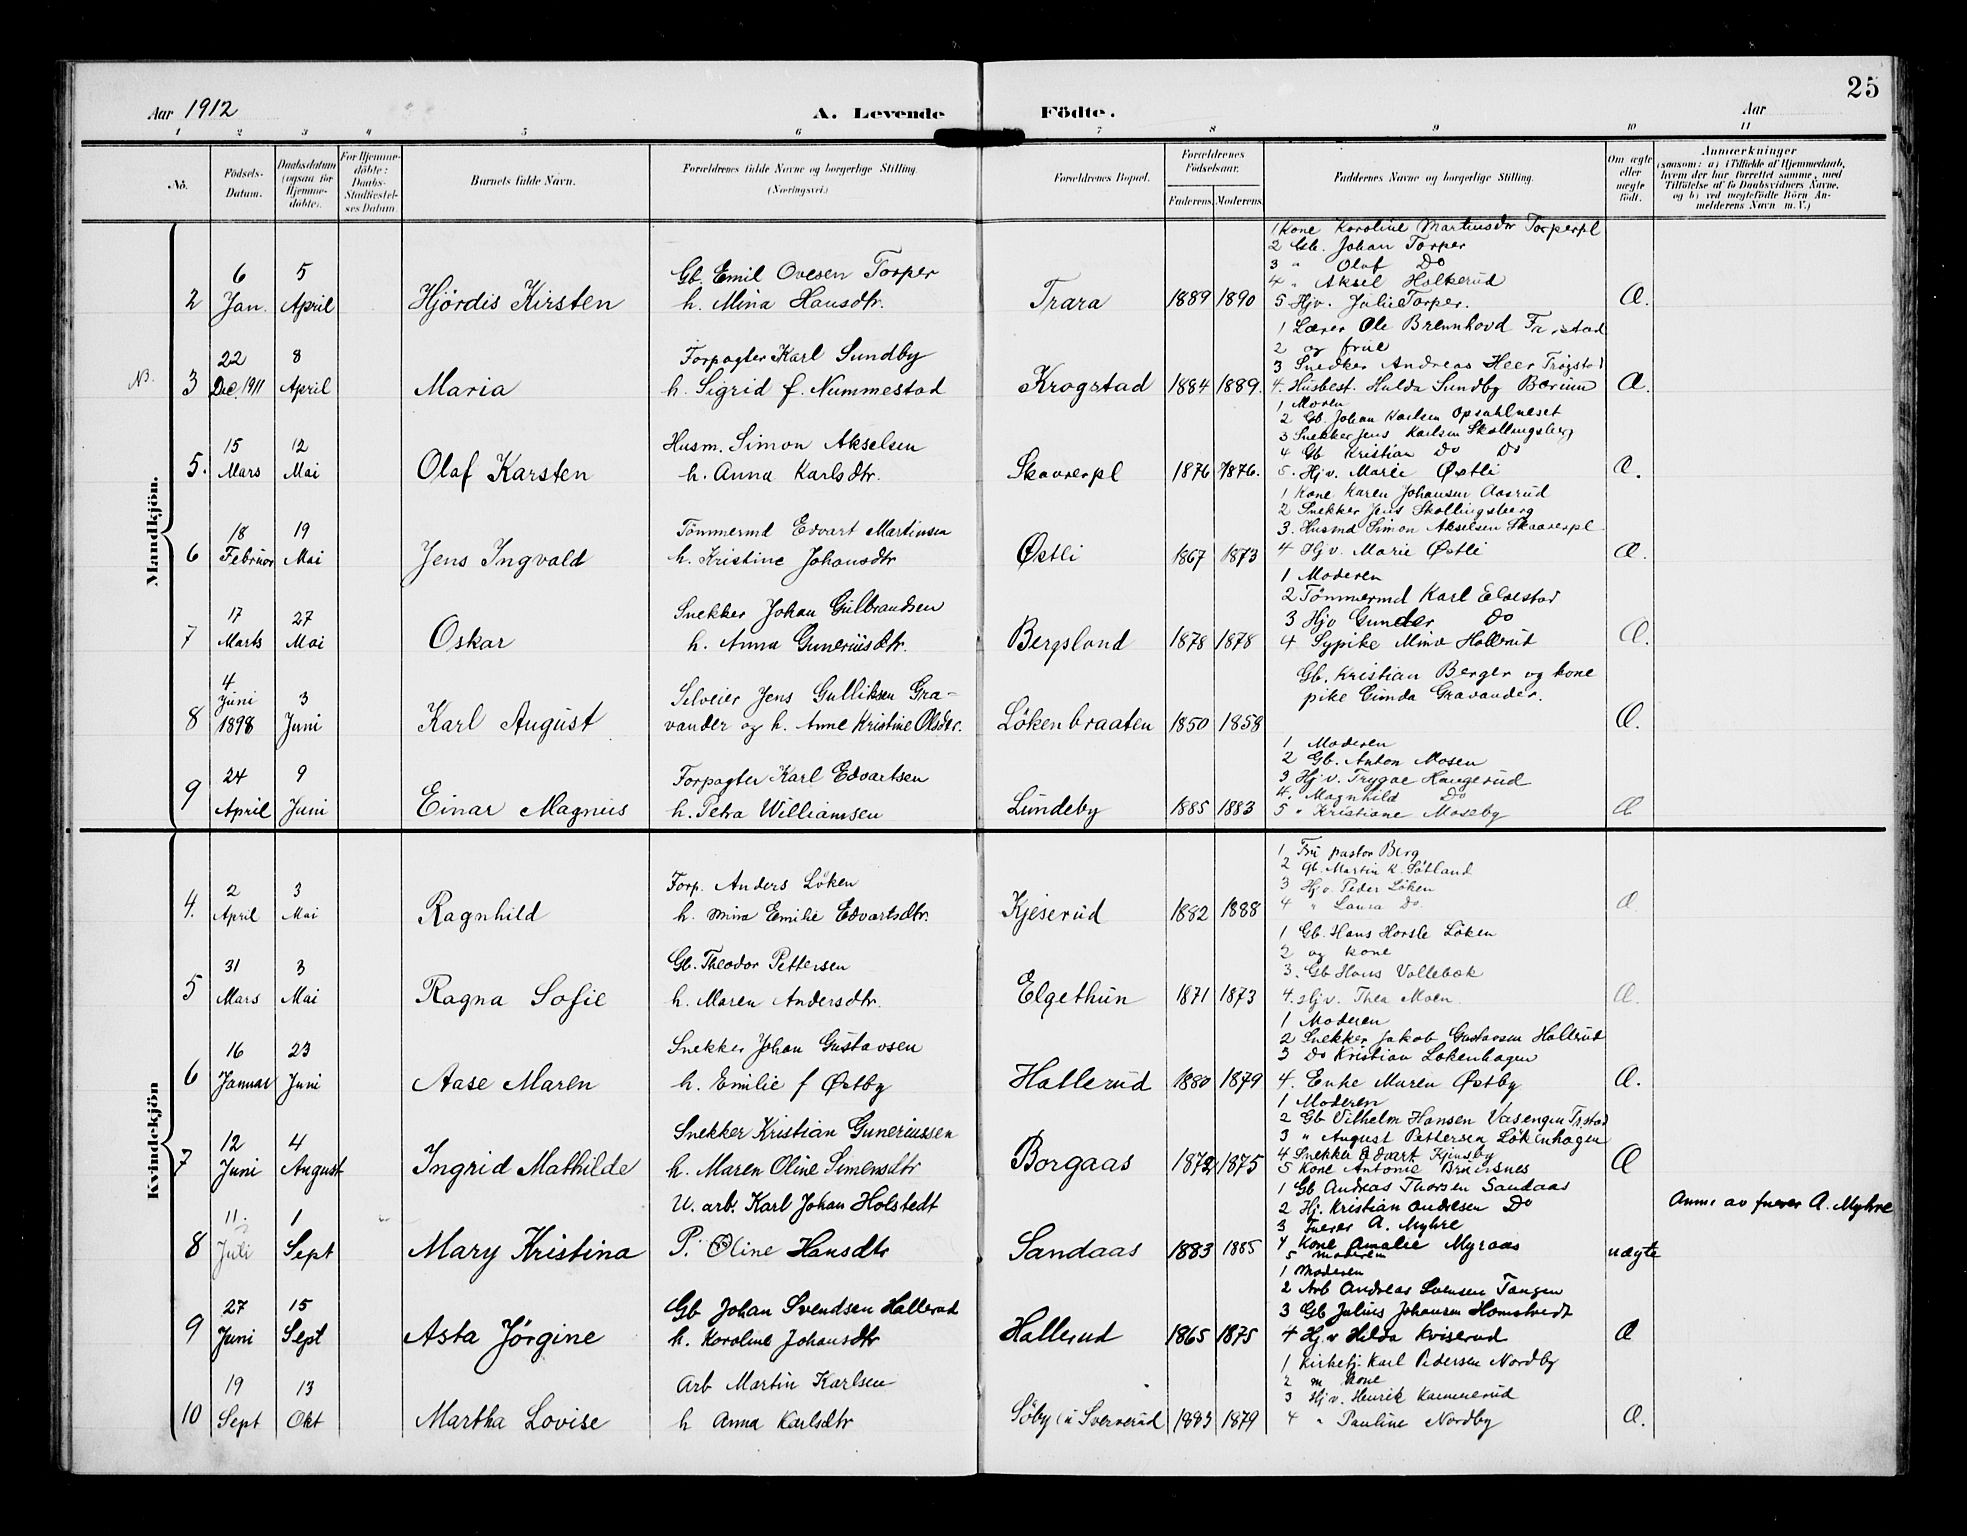 25
Aar 1912
A. Levende
Födte.
Aar
1 2 3 4 5 6 7 8 9 10 11
No.
Födsels-Datum.
Daabsdatum (ogsaa for Hjemme-döbte).
For Hjemme-döbte: Daabs-Stadfæstel-ses Datum
Barnets fulde Navn.
Forældrenes fulde Navne og borgerlige Stilling. (Næringsvei.)
Forældrenes Bopæl.
Forældrenes Födselsaar.
Faderens Moderens
Faddernes Navne og borgerlige Stilling.
Om ægte eller uægte födt.
Anmærkninger
(saasom: a) i Tilfælde af Hjemmedaab,
hvem der har forrettet samme, med
Tilföielse af to Daabsvidners Navne,
og b) ved uægtefödte Börn An-
melderens Navn m. V.)
Mandkjön.
2
6 Jan.
5 April
Hjördis Kirsten
Gb. Emil Ovesen Torper
h. Mina Hansdtr.
Trara
1889 1890
1 Kone Karoline Martinsdtr Torperpl
2 Gb. Johan Torper
3 " Olaf Do
4 " Aksel Holkerud
5 Hjv. Julie Torper.
Æ.
NB.
3
22 Dec 1911
8 April
Maria
Forpagter Karl Sundby
h. Sigrid f. Nummestad
Krogstad
1884 1889.
1 Lærer Ole Brennhovd
2 og frue
3 Snedker Andreas Heer Trøgstad
4. Husbest. Hulda Sundby Bærum
Æ.
5.
15 Mars
12 Mai
Olaf Karsten
Husm. Simon Akselsen
h. Anna Karlsdtr.
Skaarerpl
1876 1876.
1 Moren
2 Gb. Johan Karlsen Opsahlneset
3 Snekker Jens Karlsen Skollingsberg
4 Gb Kristian Do Do
5. Hjv. Marie Østli
Æ.
6
18 Februar
19 Mai
Jens Ingvald
Tömmermd Edvart Martinsen
h. Kristine Johansdtr
Østli
1867 1873
1 Kone Karen Johansen Aasrud
2 Snekker Jens Skollingsberg
3. Husmd Simon Akselsen Skaarerpl
4 Hjv. Marie Østli
Æ.
7
17 Marts
27 Mai
Oskar
Snekker Johan Gulbrandsen
h. Anna Guneriusdtr.
Bergsland
1878 1878
1 Moderen
2 Tömmermd Karl
3 Hjv Gunder Do
4 Sypike Mina Hallerud
Æ.
8
4 Juni 1898
3 Juni
Karl August
Selveier Jens Gulliksen Gra-
vander og h. Anne Kristine Olsdtr.
Lökenbraaten
1850 1858
Gb. Kristian Berger og kone
pike Gunda Gravander.
Æ.
9
24 April
9 Juni
Einar Magnus
Forpagter Karl Edvartsen
h. Petra Williamsen
Lundeby
1885 1883
1 Moderen
2 Gb. Anton Mosen
3 Hjv. Trygve Haugerud
4. " Magnhild Do
5 " Kristiane Moseby
Æ
Kvindekjön
4.
2 April
3 Mai
Ragnhild
Forp. Anders Löken
h. Mina Emilie Edvartsdtr.
Kjeserud
1882 1888
1 Fru pastor Berg
2 Gb. Martin K. Sötland
3 Hjv. Peder Löken
4 " Laura Do
Æ
5
31 Mars
3 Mai
Ragna Sofie
Gb. Theodor Pettersen
h. Maren Andersdtr.
Elgethun
1871 1873
1 Gb. Hans Horsle Löken
2 og kone
3. Gb Hans Vollebæk
4. Hjv. Thea Moen.
Æ.
6
16 Januar
23 Juni
Aase Maren
Snekker Johan Gustavsen
h. Emilie f Østby
Hallerud
1880 1879
1 Moderen
2 Snekker Jakob Gustavsen Hallerud
3 Do Kristian Lokenhagen
4. Enke Maren Østby
Æ.
7
12 Juni
4 August
Ingrid Mathilde
Snekker Kristian Guneriussen
h. Maren Oline Simensdtr
Borgaas
1872 1875
1 Moderen
2 Gb Vilhelm Hansen Vasengen Tr.stad
3 " August Pettersen Lökenhagen
4 Snekker Edvart
5 Kone Antonie
Æ
8
11. Juli
1 Sept
Mary Kristina
U. arb. Karl Johan Holstedt
P. Oline Hansdtr
Sandaas
1883 1885
1 Gb Andreas Thorsen Sandaas
2 Hj. Kristian Andresen Do
3 A. Myhre
4 Kone Amalie Myraas
5 Moderen
uægte
Anm. av A. Myhre
9
27 Juni
15 Sept
Asta Jörgine
Gb Johan Svendsen Hallerud
h. Karoline Johansdtr
Hallerud
1865 1875
1 Moderen
2 Arb Andreas Svensen Tangen
3 Gb Julius Johansen Homstvedt
4 Hj.v Hilda Kviserud
Æ
10
19 Sept
13 Okt
Martha Lovise
Arb Martin Karlsen
h Anna Karlsdtr
Söby u Sververud
1883 1879
1 Kirketj. Karl Pedersen Nordby
2 m kone
3 Hjv. Henrik Kammerud
4 " Pauline Nordby
Æ.